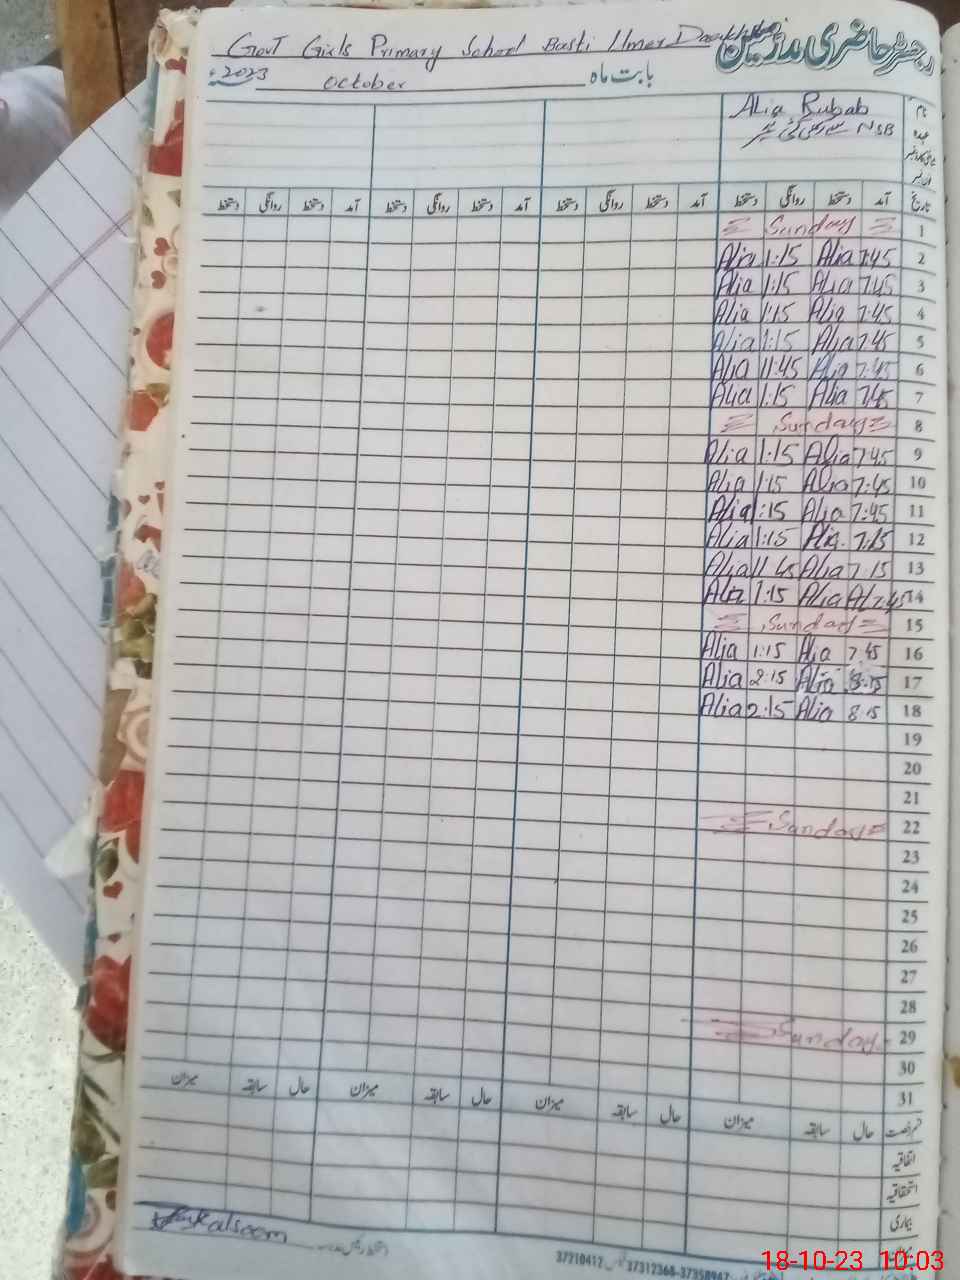 رجسٹر حاضری مدرسین
Govt Girls Primary School Basti Umer
2023ء October بابت ماہ
نام Alia Rubab
عہدہ NSB
تاریخ آمد دستخط روانگی دستخط آمد دستخط روانگی دستخط آمد دستخط روانگی دستخط آمد دستخط روانگی دستخط
1 Sunday
2 Alia 1:15 Alia 7:45
3 Alia 1:15 Alia 7:45
4 Alia 1:15 Alia 7:45
5 Alia 1:15 Alia 7:45
6 Alia 11:45 Alia 7:45
7 Alia 1:15 Alia 7:45
8 Sunday
9 Alia 1:15 Alia 7:45
10 Alia 1:15 Alia 7:45
11 Alia 1:15 Alia 7:45
12 Alia 1:15 Alia 7:15
13 Alia 11:45 Alia 7:15
14 Alia 1:15 Alia Al 7:45
15 Sunday
16 Alia 1:15 Alia 7:45
17 Alia 2:15 Alia 8:15
18 Alia 2:15 Alia 8:15
19
20
21
22 Sunday
23
24
25
26
27
28
29 Sunday
30
31
رخصت حال سابقہ میزان حال سابقہ میزان حال سابقہ میزان حال سابقہ میزان
اتفاقیہ
استحقاقیہ
بیماری
میزان
Kalsoom
37210412 37312368-37358947
18-10-23 10:03